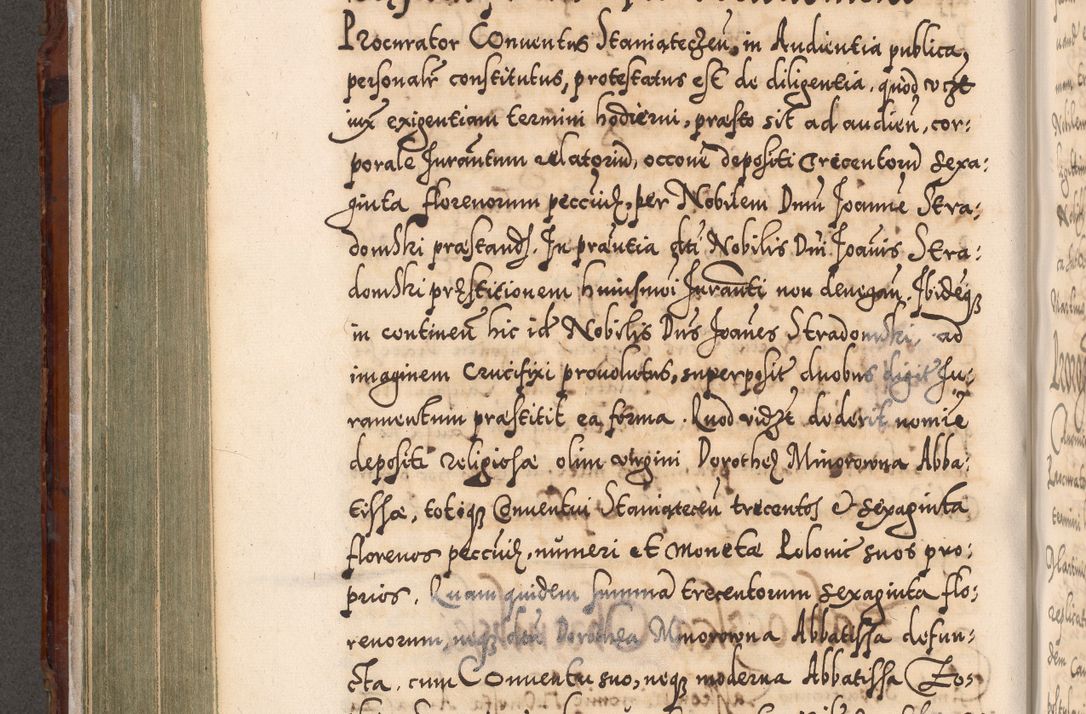 Procurator Conuentus Staniąteczeń, in Audientia publica,
personalr constitutus, protestatus est de diligentia, quod vczt
iux exigentiam termini hodierni, præsto sit ad audień, cor-
porale Iuramtum relatoriu, occone depositi Trecentoru sexa-
ginta florenorum peccuiz, per Nobilem Dnu Ioanne Stra-
domski præstand. In præntia gti Nobilis Dni Ioanis Stra-
domski præstitionem huiusmoi Iuramti non denegan. Ibideq
in continen hic id Nobilis Dns Ioanes Stradomski, ad
imaginem Crucifixi prouolutus, superposit duobus digit Iu-
ramentum præstitit ea forma. Quod videlt dederit nomie
depositi religiosæ olim virgini Dorotheæ Minorowna Abba-
tissæ, totiq Conuentui Staniąteceń trecentos & sexaginta
florenos peccuiz, numeri et monetæ Polonic suos pro-
prios. Quam quidem summa trecentorum sexaginta flo-
renorum, neq den Dorothea Minorowna Abbatissa defun-
cta, cum Conuentu suo, neq moderna Abbatissa Zo-